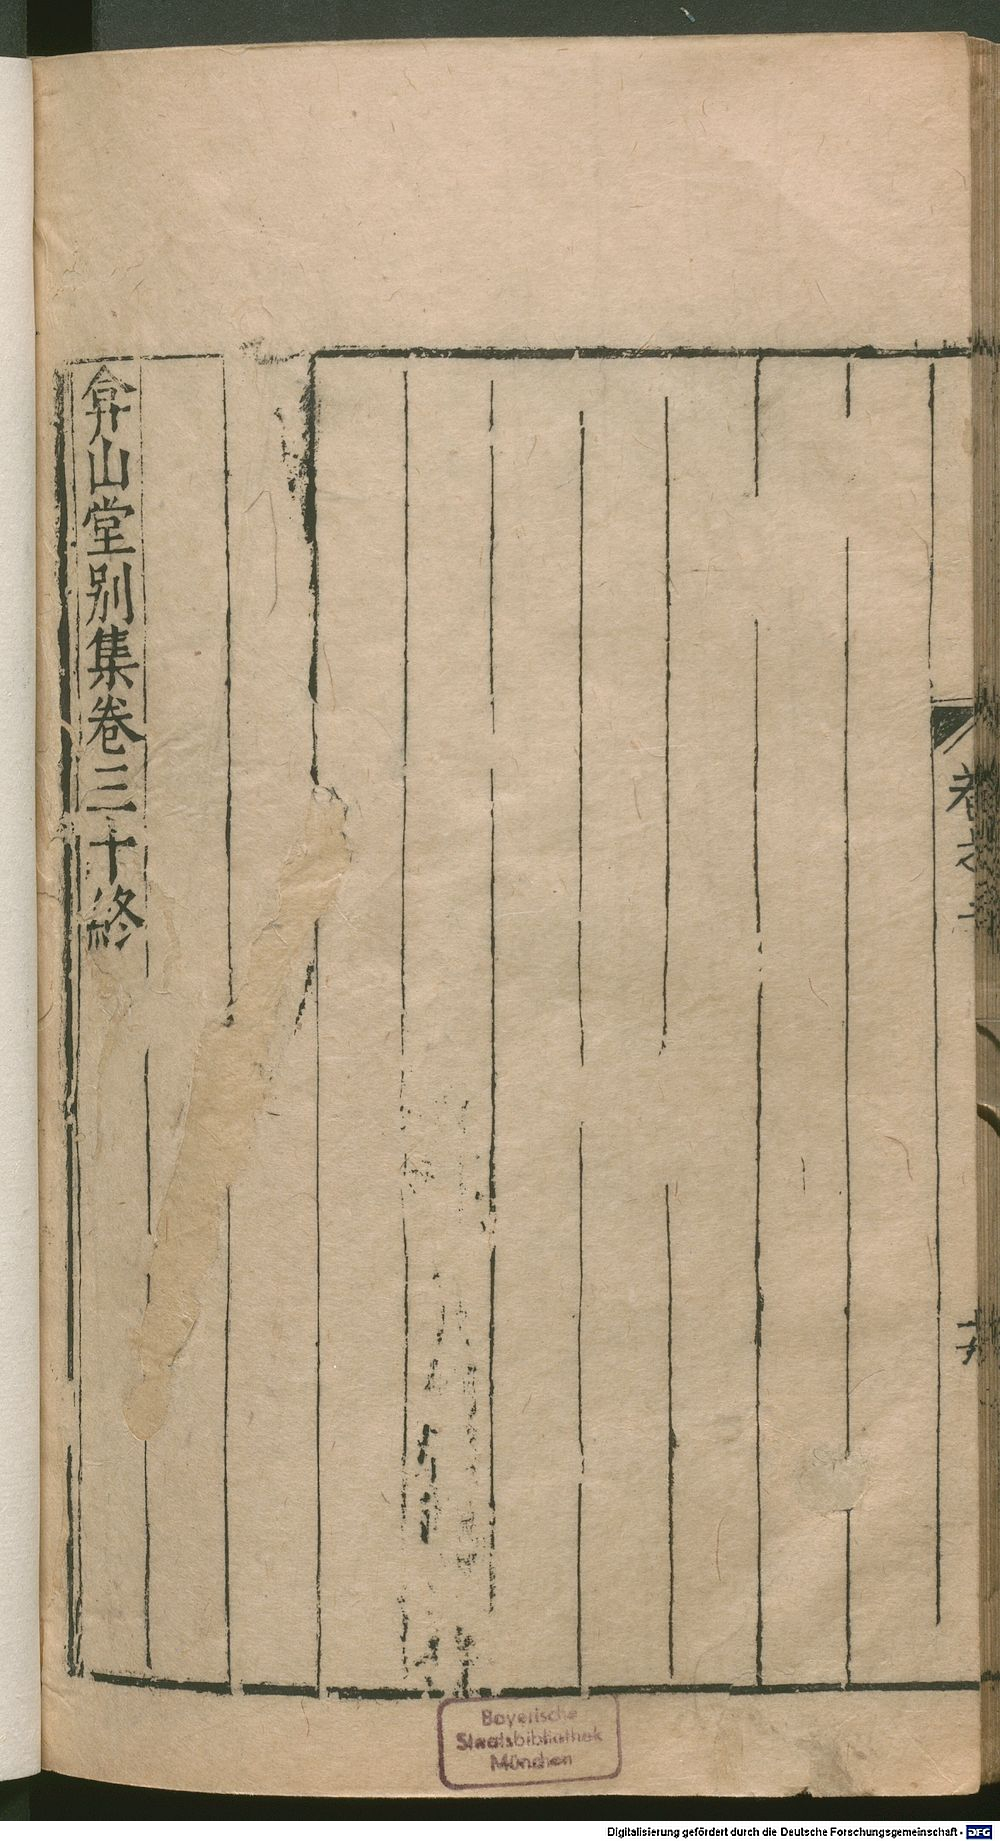 弇山堂别集卷三十終
Bayerische
Staatsbibliothek
München
Digitalisierung gefördert durch die Deutsche Forschungsgemeinschaft - DFG